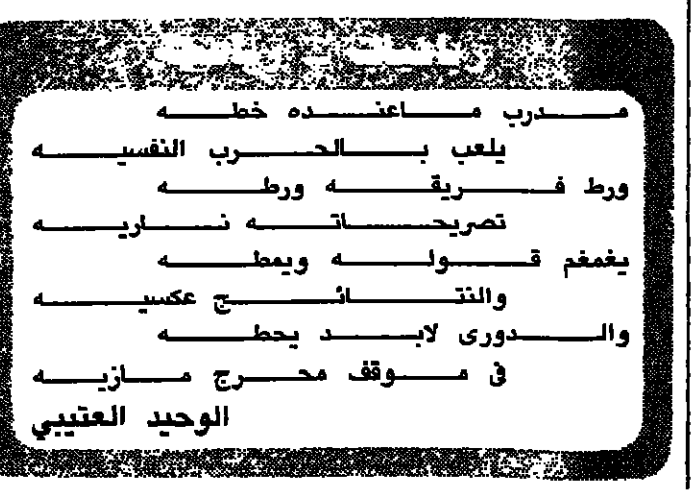 مدرب ماعنده خطه
يلعب بالحرب النفسيه
ورط فريقه ورطه
تصريحاته ناريه
يغمغم قوله ويمطه
والنتائج عكسيه
والدورى لابد يحطه
فى موقف محرج مازيه
الوحيد العتيبي